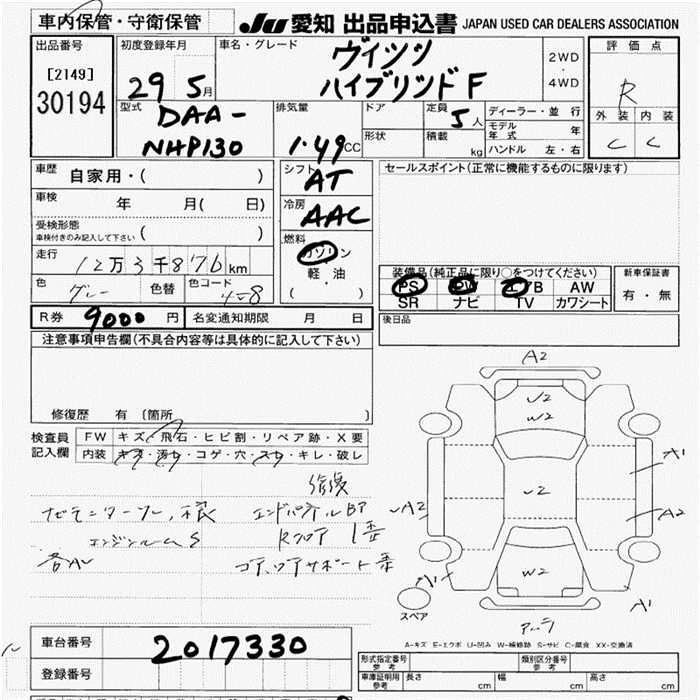 車内保管・守衛保管
JU 愛知 出品申込書 JAPAN USED CAR DEALERS ASSOCIATION
出品番号
[2149]
30194
初度登録年月
29 5月
車名・グレード
ヴィッツ
ハイブリッドF
2WD
・
4WD
評価点
R
外装 内装
C C
型式
DAA-
NHP130
排気量
1.49CC
ドア
定員
5人
形状
積載
kg
ディーラー・並行
モデル年式 年
ハンドル 左・右
車歴
自家用・( )
車検 年 月( 日)
受検形態
車検付きのみ記入して下さい ( )
走行 12万3千876km
色 グレー 色替 色コード
シフト
AT
冷房
AAC
燃料
ガソリン
軽・油
( )
セールスポイント(正常に機能するものに限ります)
装備品(純正品に限り○をつけてください)
PS PW エアB AW
SR ナビ TV カワシート
新車保証書
有・無
後日品
R券 9000円 名変通知期限 月 日
注意事項申告欄(不具合内容等は具体的に記入して下さい)
修復歴 有〔箇所 〕
検査員
記入欄
FW キズ・飛石・ヒビ割・リペア跡・X要
内装 キズ・汚れ・コゲ・穴・スレ・キレ・破レ
修復
エンドパネルBP
エンジンルームS
A2
U2
W2
A1
U2
A2
A2
W2
A1
A1
スペア
A-キズ E-エクボ U-凹み W-補修跡 S-サビ C-腐食 XX-交換済
車台番号 2017330
登録番号
形式指定番号
参考
類別区分番号
参考
車庫証明用
参考
長さ cm 幅 cm 高さ cm